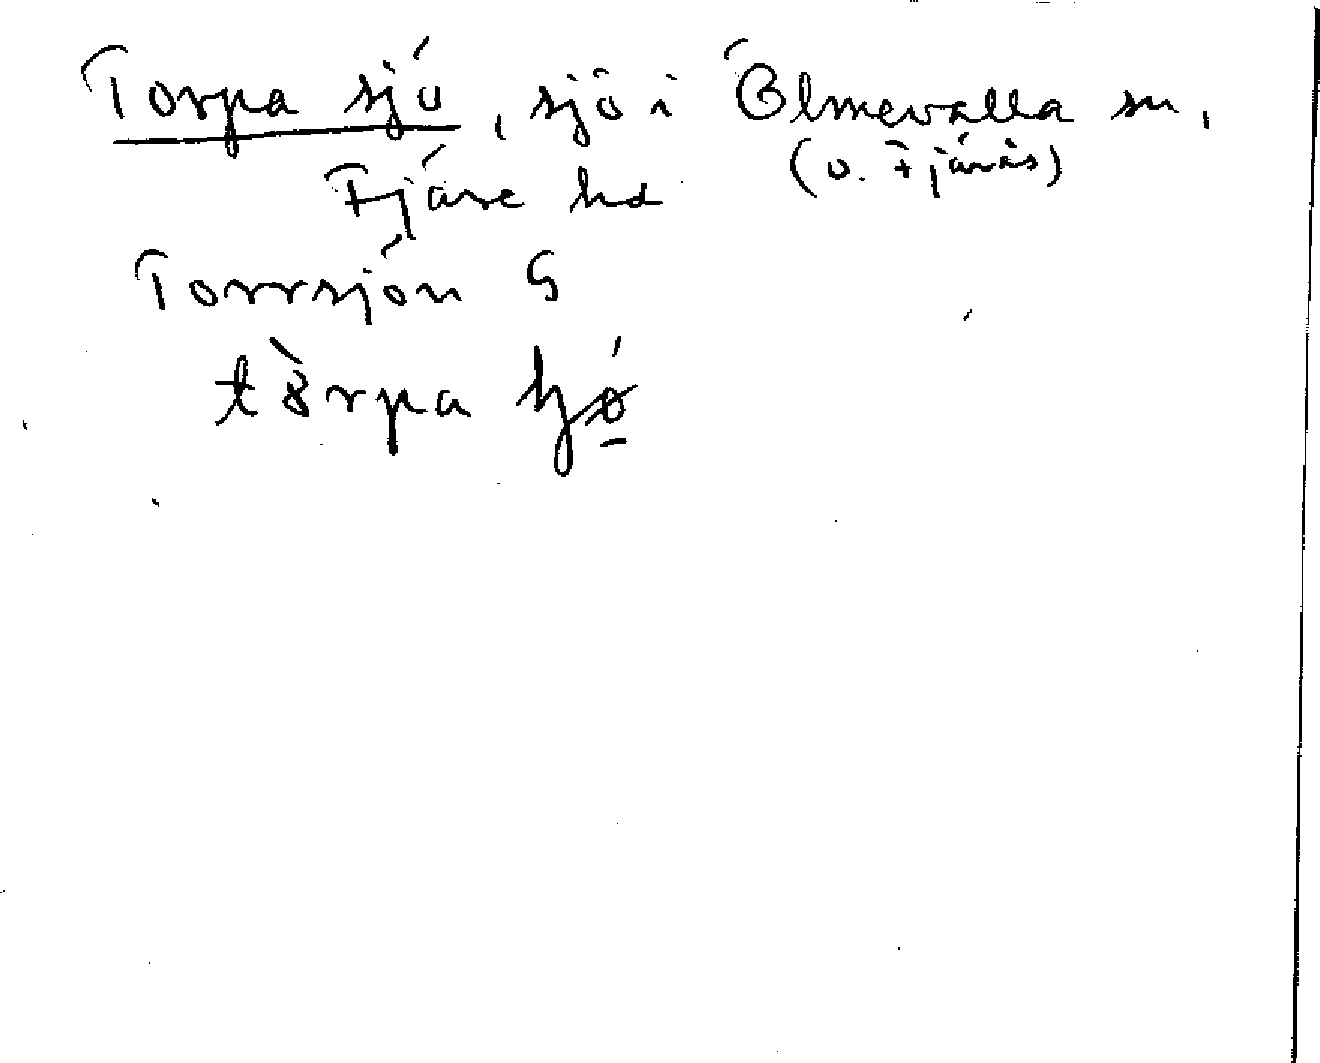 Torpa sjö, sjö i Ölmevalla sn,
(o. Fjärås)
Fjäre hd
Torrsjön G
tòrpa